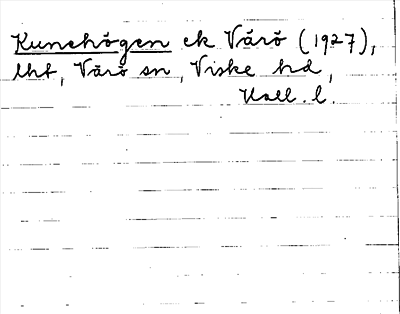 Kunehögen ek Värö (1927),
lht, Värö sn, Viske hd,
Hall. l.